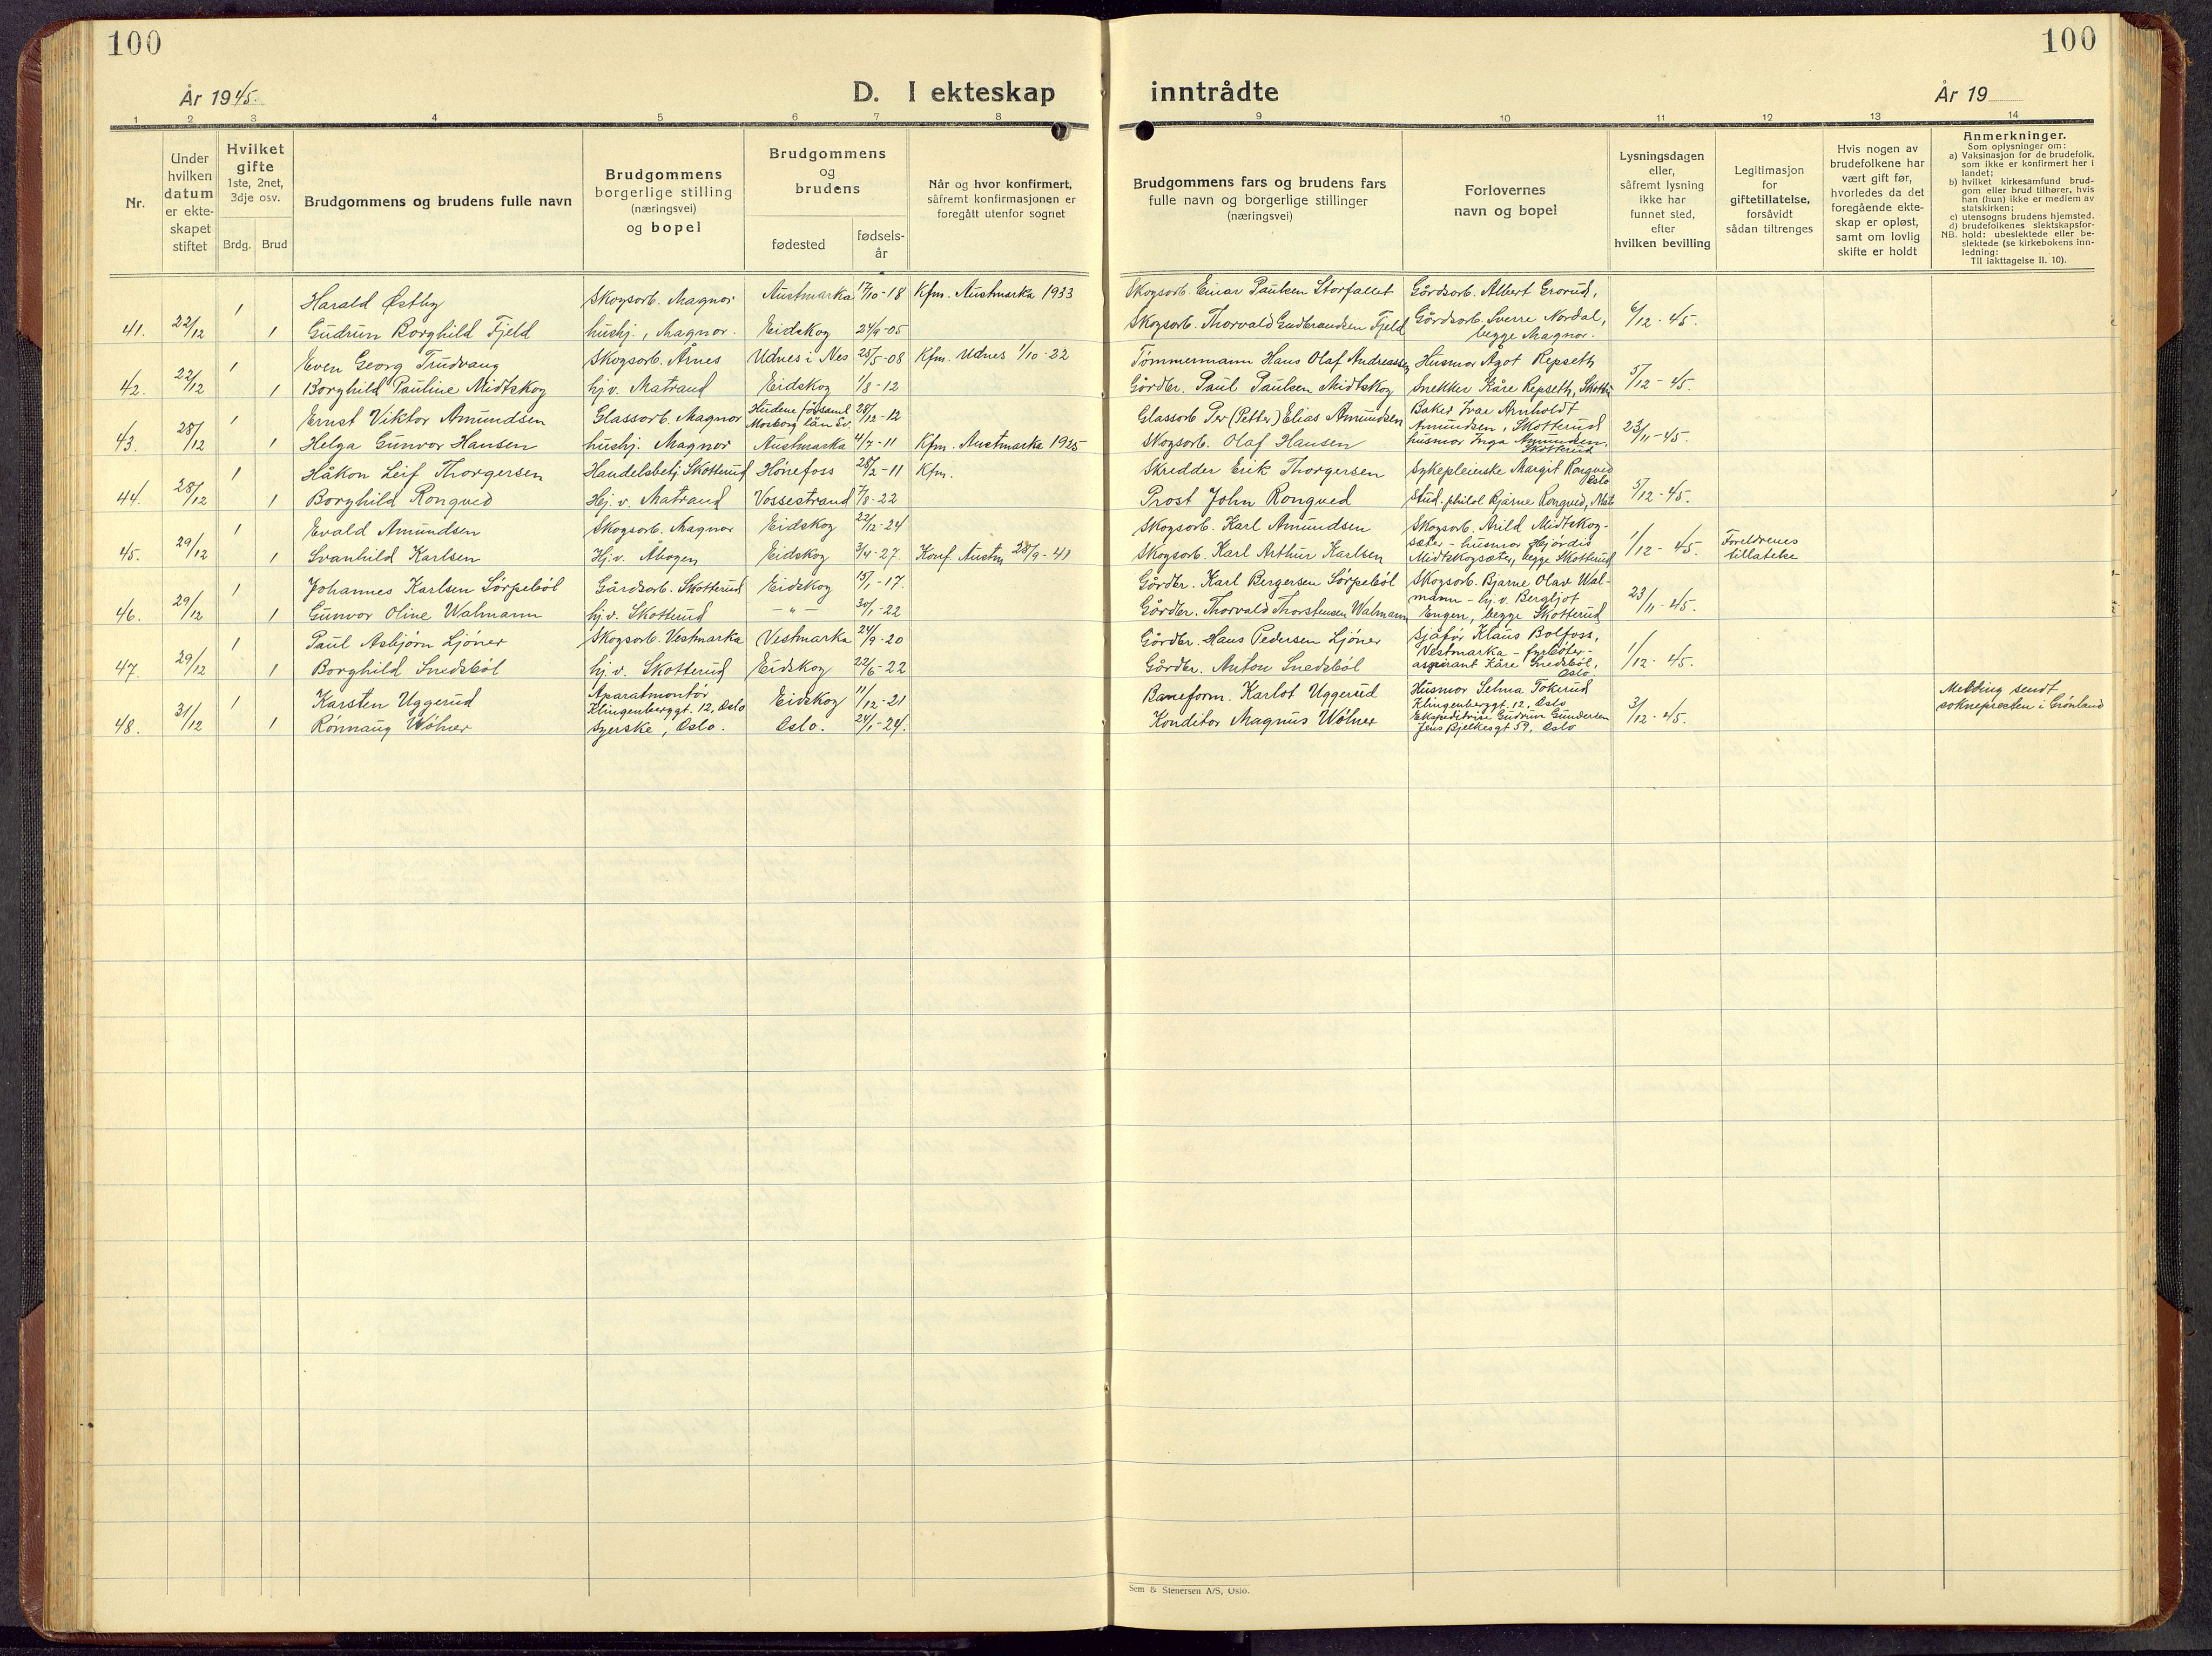 100
100
År 1945.
D. I ekteskap inntrådte
År 19
1 2 3 4 5 6 7 8 9 10 11 12 13 14
Nr.
Under
hvilken
datum
er ekte-
skapet
stiftet
Hvilket
gifte
1ste, 2net,
3dje osv.
Brdg. Brud
Brudgommens og brudens fulle navn
Brudgommens
borgerlige stilling
(næringsvei)
og bopel
Brudgommens
og
brudens
fødested
fødsels-
år
Når og hvor konfirmert,
såfremt konfirmasjonen er
foregått utenfor sognet
Brudgommens fars og brudens fars
fulle navn og borgerlige stillinger
(næringsvei)
Forlovernes
navn og bopel
Lysningsdagen
eller,
såfremt lysning
ikke har
funnet sted,
efter
hvilken bevilling
Legitimasjon
for
giftetillatelse,
forsåvidt
sådan tiltrenges
Hvis nogen av
brudefolkene har
vært gift før,
hvorledes da det
foregående ekte-
skap er opløst,
samt om lovlig
skifte er holdt
Anmerkninger.
Som oplysninger om:
a) Vaksinasjon for de brudefolk.
som ikke er konfirmert her i
landet;
b) hvilket kirkesamfund brud-
gom eller brud tilhører, hvis
han (hun) ikke er medlem av
statskirken;
c) utensogns brudens hjemsted.
d) brudefolkenes slektskapsfor-
NB. hold: ubeslektede eller be-
slektede (se kirkebokens inn-
ledning:
Til iakttagelse II. 10).
1 Harald Østby Skogsarb. Magnor Austmarka 17/10-18 Kfm. Austmarka 1933 Skogsarb. Einar Paulsen Storfallet Gårdsarb. Albert Grorud,
41. 22/12 1 Gudrun Borghild Fjeld hushj., Magnor. Eidskog 24/9-05 Skogsarb. Thorvald Gudbrandsen Fjeld Gårdsarb. Sverre Nordal, 6/12-45.
begge Magnor.
1 Even Georg Trudvang Skogsarb. Årnes Udnes i Nes 25/5-08 Kfm. Udnes 1/10-22 Tømmermann Hans Olaf Andreassen Husmor Ågot Repseth
42. 22/12 1 Borghild Pauline Midtskog hj.v. Matrand Eidskog 1/8-12 Gårdbr. Paul Paulsen Midtskog Snekker Kåre Repseth, 5/12-45.
1 Ernst Viktor Amundsen Glassarb. Magnor 28/12-12 Glassarb Per (Petter) Elias Amundsen Baker Ivar Arnholdt
Amundsen, Skotterud
43. 28/12 1 Helga Gunvor Hansen hushj. Magnor Austmarka 4/7-11 Kfm. Austmarka 1925 Skogsarb. Olaf Hansen husmor Inga Amundsen, 23/11-45.
Skotterud
1 Håkon Leif Thorgersen Handelsbetj. Skotterud Hønefoss 28/2-11 Kfm. Skredder Erik Thorgersen Sykepleierske Margit Rongved
Oslo
44. 28/12 1 Borghild Rongved Hj.v. Matrand Vossestrand 7/8-22 Prost John Rongved Stud. philol Bjarne Rongved, Mat 5/12-45.
1 Evald Amundsen Skogsarb. Magnor Eidskog 22/12-24 Skogsarb. Karl Amundsen Skogsarb. Arild Midtskog-
sæter - husmor Hjørdis
45. 29/12 1 Svanhild Karlsen Hj.v. Åbogen Eidskog 3/4-27 Konf. Austm 28/9-41 Skogsarb. Karl Arthur Karlsen Midtskogsæter, begge Skotterud 1/12-45. Foreldrenes
tillatelse
1 Johannes Karlsen Sørpebøl Gårdsarb. Skotterud Eidskog 15/1-17. Gårdbr. Karl Bergersen Sørpebøl Skogsarb. Bjarne Olav Wal-
mann - hj.v. Bergljot
46. 29/12 1 Gunvor Oline Walmann hj.v. Skotterud - " - 30/1-22 Gårdbr. Thorvald Thorstensen Walmann Engen, begge Skotterud 23/11-45.
1 Paul Asbjørn Ljøner Skogsarb. Vestmarka Vestmarka 24/9-20 Gårdbr. Hans Pedersen Ljøner Sjåfør Klaus Bolfoss,
Vestmarka - fyrbøter-
47. 29/12 1 Borghild Snedsbøl hj.v. Skotterud Eidskog 22/6-22 Gårdbr. Anton Snedsbøl aspirant Kåre Snedsbøl, 1/12-45.
Oslo
1 Karsten Uggerud Aparatmontør Eidskog 11/12-21 Baneform. Karlot Uggerud Husmor Selma Tokerud Melding sendt
Klingenberggt. 12, Oslo Klingenberggt. 12, Oslo soknepresten i Grønland
48. 31/12 1 Rønnaug Wølner Syerske, Oslo. Oslo. 24/1-24. Konditor Magnus Wølner Ekspeditrise Gudrun Gundersen 3/12-45.
Jens Bjelkesgt 59, Oslo
Sem & Stenersen A/S, Oslo.